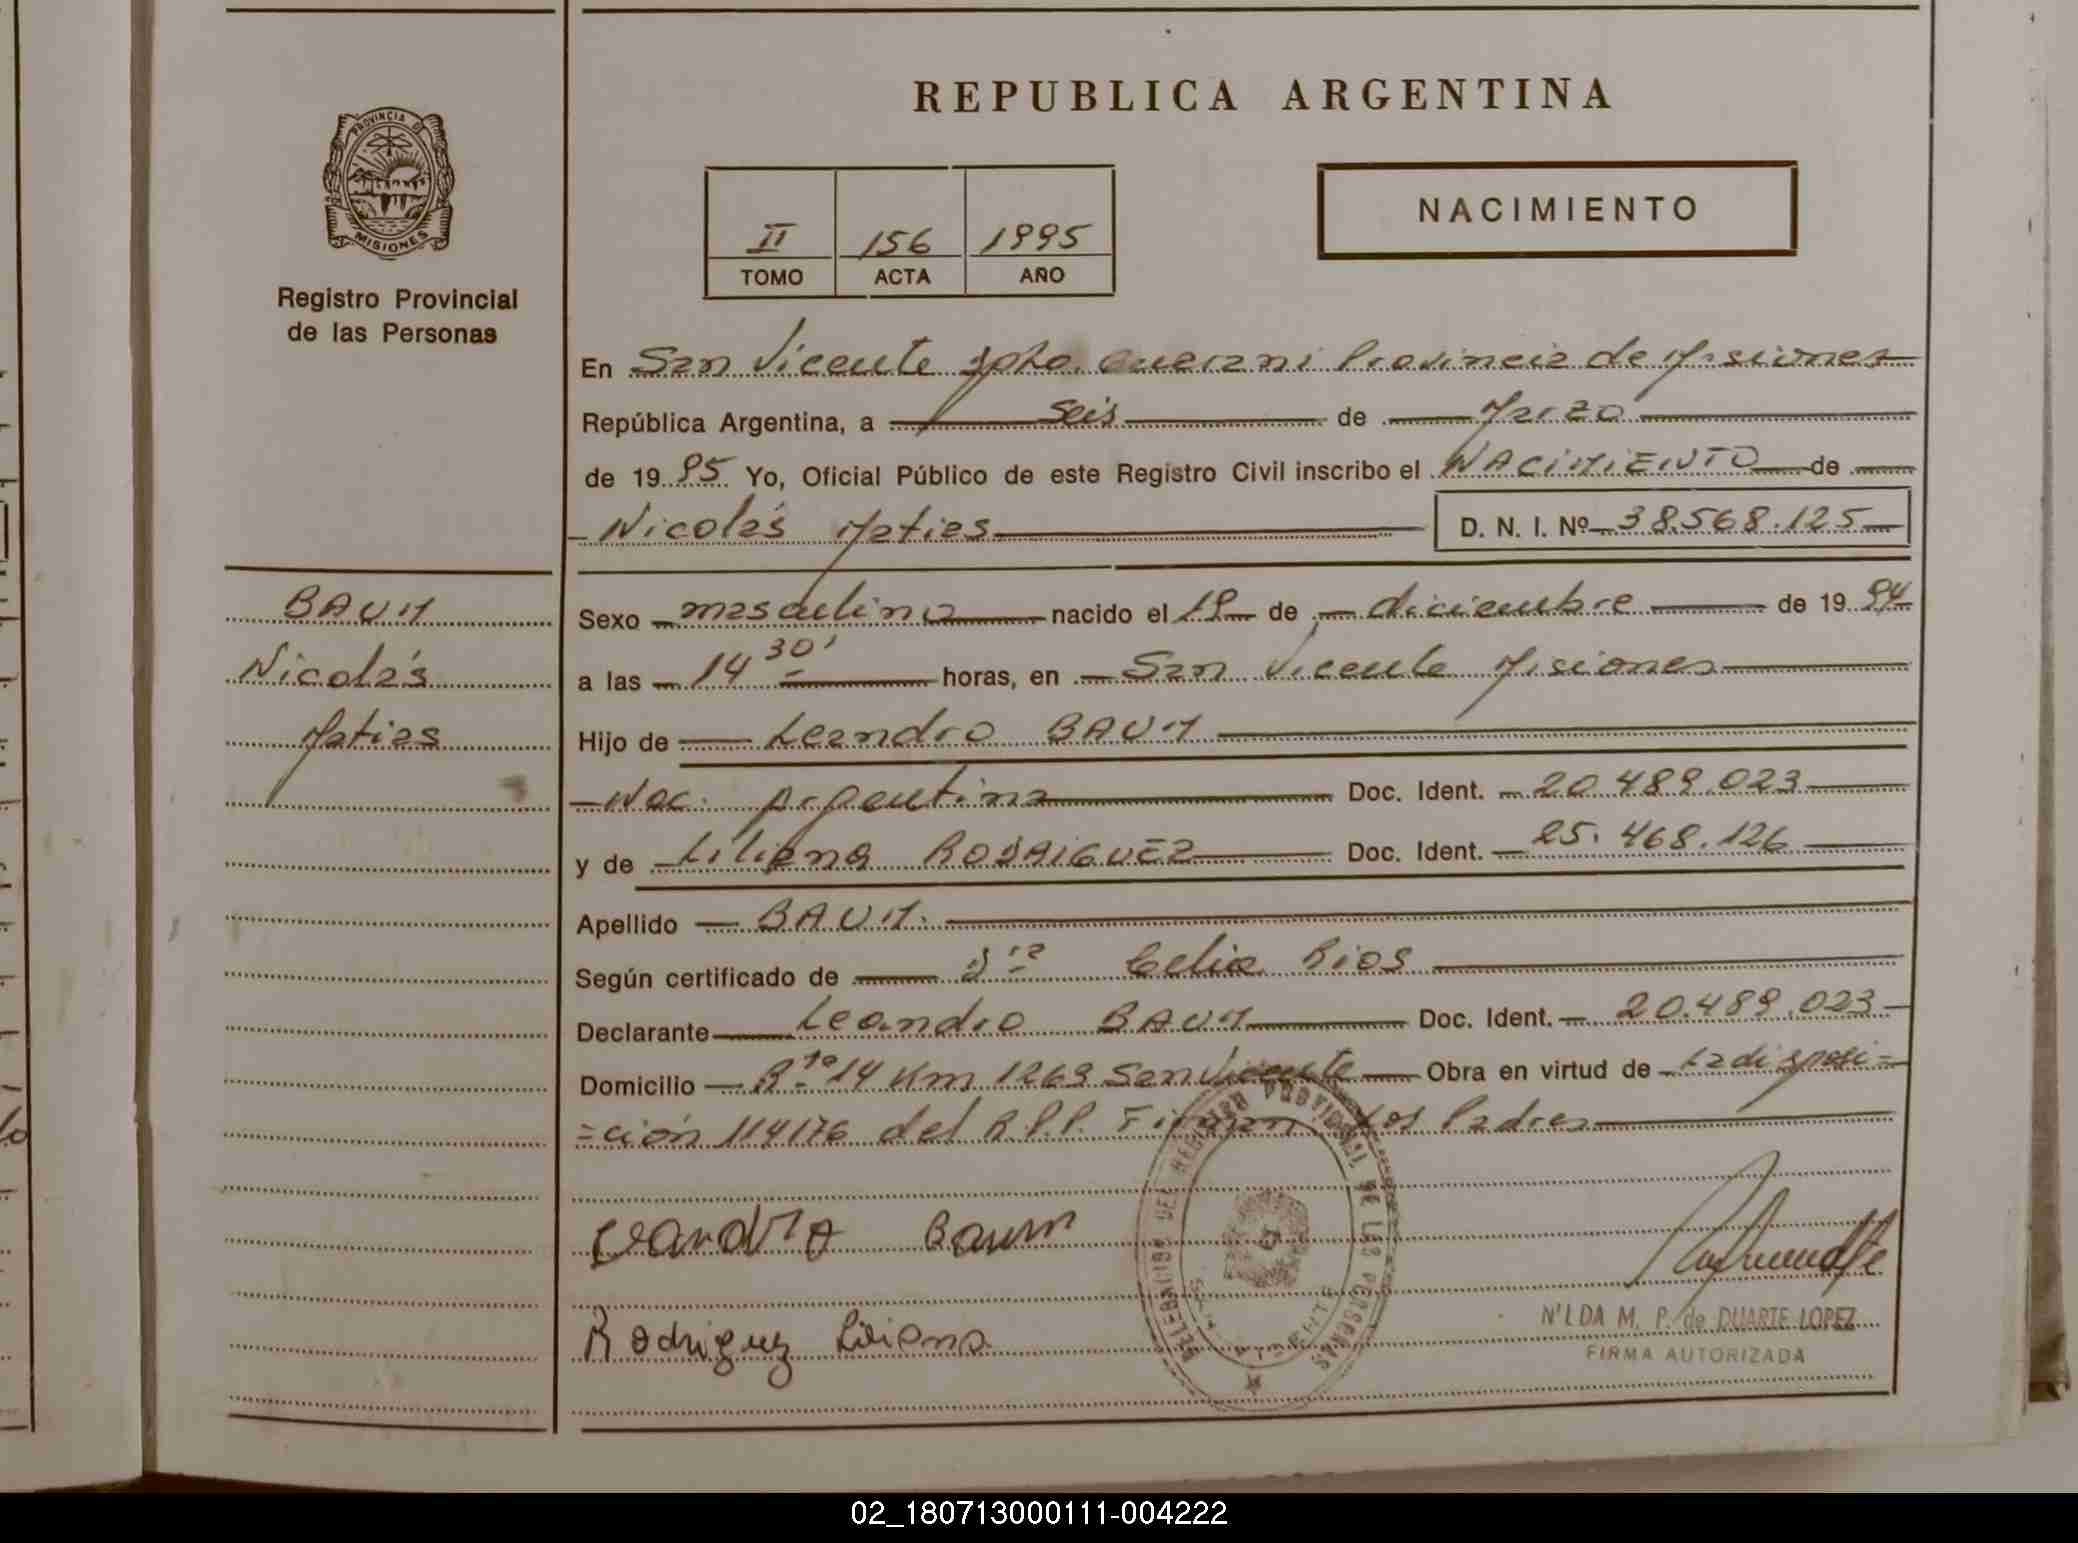 REPUBLICA ARGENTINA
PROVINCIA DE
MISIONES
Registro Provincial
de las Personas
II 156 1995
TOMO ACTA AÑO
NACIMIENTO
En San Vicente Dpto. Guarani Provincia de Misiones
República Argentina, a seis de Marzo
de 19 95 Yo, Oficial Público de este Registro Civil inscribo el NACIMIENTO de
Nicolás Matias D. N. I. Nº 38.568.125
BAUM
Nicolás
Matias
Sexo masculino nacido el 19 de diciembre de 19 94
a las 14 30' horas, en San Vicente Misiones
Hijo de Leandro BAUM
Nac. Argentina Doc. Ident. 20.489.023
y de Liliana RODRIGUEZ Doc. Ident. 25.468.126
Apellido BAUM.
Según certificado de Dra Celia Rios
Declarante Leandro BAUM Doc. Ident. 20.489.023
Domicilio Rta 14 Km 1269 San Vicente Obra en virtud de La disposi=
=ción 114176 del R.P.P. Firman los Padres
Leandro Baum
Rodriguez Liliana
DELEGACION DEL REGISTRO PROVINCIAL DE LAS PERSONAS
SAN VICENTE
NILDA M. P. de DUARTE LOPEZ
FIRMA AUTORIZADA
02_180713000111-004222